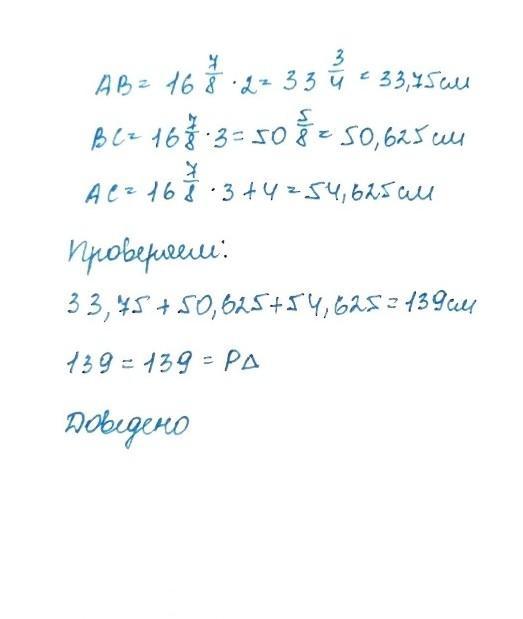 AB = 16 7/8 · 2 = 33 3/4 = 33,75 см
BC = 16 7/8 · 3 = 50 5/8 = 50,625 см
AC = 16 7/8 · 3 + 4 = 54,625 см
Проверяем:
33,75 + 50,625 + 54,625 = 139 см
139 = 139 = P∆
Доведено